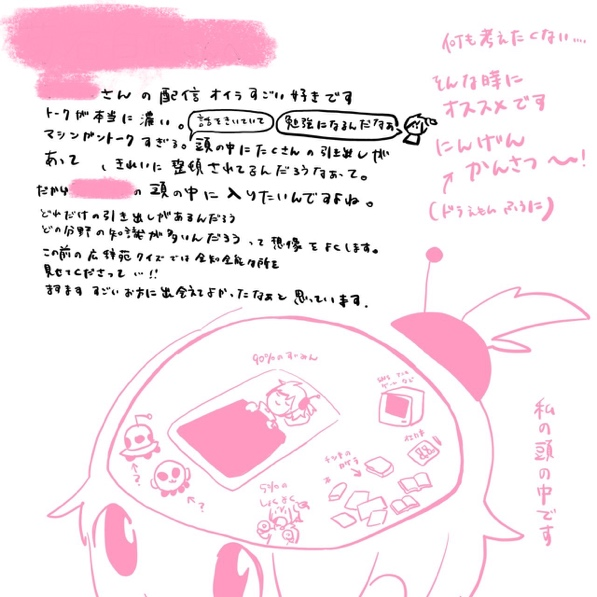 さんの配信オイラすごい好きです
トークが本当に濃い。
話をきいていて
勉強になるんだなぁ
マシンガントークすぎる。頭の中にたくさんの引き出しが
あって きれいに整頓されてるんだろうなぁって。
だから の頭の中に入りたいんですよね。
どれだけの引き出しがあるんだろう
どの分野の知識が多いんだろうって想像をよくします。
この前の広辞苑クイズでは全知全能な所を
見せてくださって…!!
ますますすごいお方に出会えてよかったなぁと思っています.
何も考えたくない….
そんな時に
オススメです
にんげん
かんさつ〜〜!
(ドラえもん ふうに)
90%のすいみん
SNS
ゲームなど
仕事
5%の
しょくよく
本
?
?
私の頭の中です